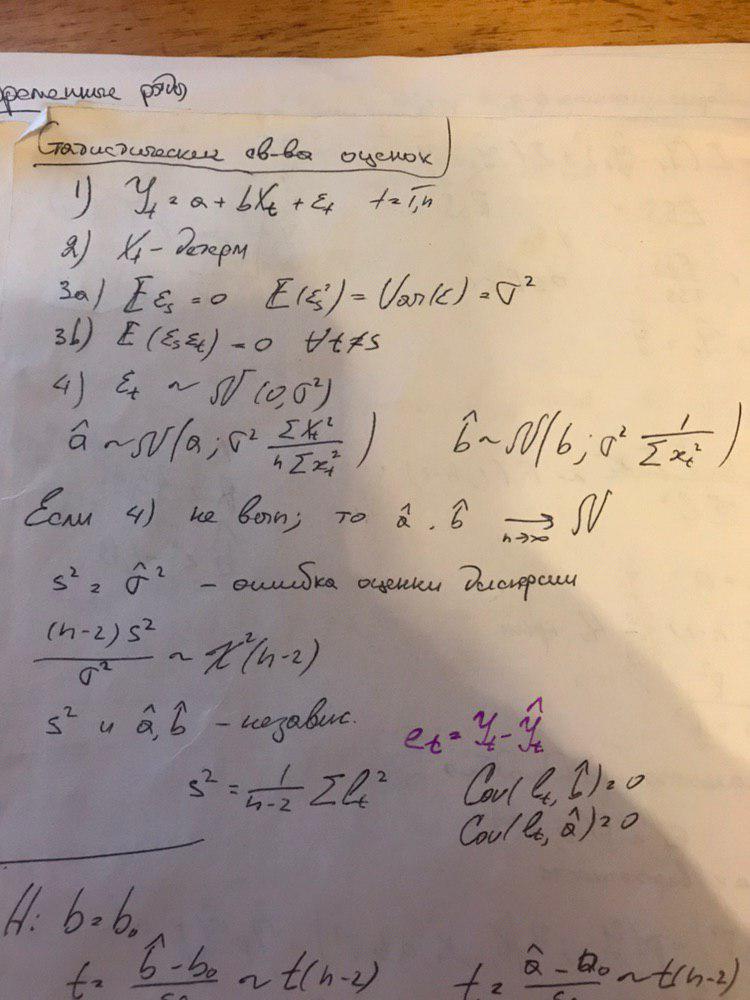 ременные ряды
Статистические св-ва оценок
1) Y_t = a + bX_t + ε_t   t = 1,n
2) X_t - детерм
3a) E ε_s = 0   E(ε_s²) = Var(ε) = σ²
3b) E(ε_s ε_t) = 0   ∀t≠s
4) ε_t ~ N(0,σ²)
â ~ N(a; σ² ΣX_t² / nΣx_t²)   b̂ ~ N(b; σ² 1/Σx_t²)
Если 4) не вып; то â, b̂ → N
n→∞
s² = σ̂² - ошибка оценки дисперсии
(n-2)s² / σ² ~ χ²(n-2)
s² и â, b̂ - независ.
e_t = Y_t - Ŷ_t
s² = 1/(n-2) Σe_t²   Cov(e_t, b̂) = 0
Cov(e_t, â) = 0
H: b = b₀
t = b̂ - b₀ / ~ t(n-2)   t = â - a₀ / ~ t(n-2)